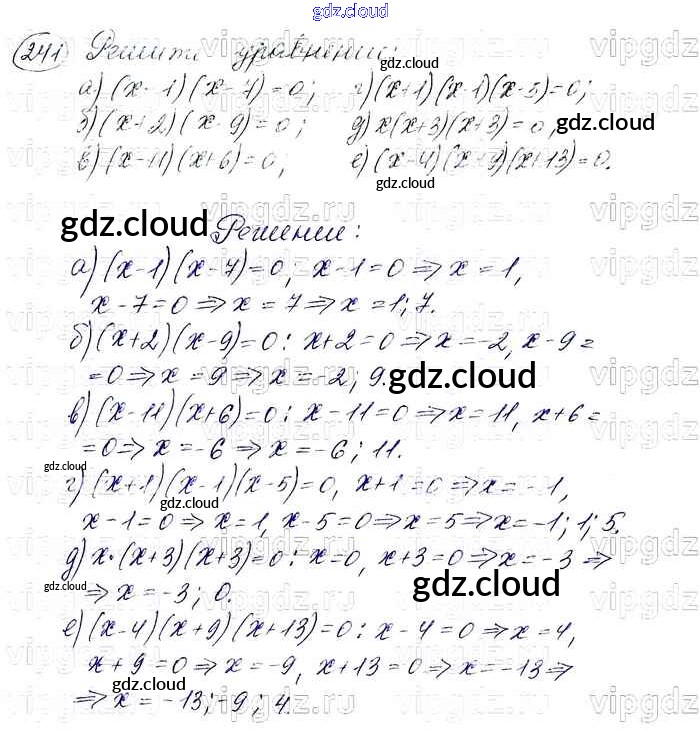 gdz.cloud
241 Решите уравнения:
а) (x-1)(x-7)=0; г) (x+1)(x-1)(x-5)=0;
б) (x+2)(x-9)=0; д) x(x+3)(x+3)=0,
gdz.cloud
в) (x-11)(x+6)=0; е) (x-4)(x+9)(x+13)=0.
gdz.cloud
gdz.cloud Решение:
а) (x-1)(x-7)=0; x-1=0 ⇒ x=1,
x-7=0 ⇒ x=7 ⇒ x=1; 7.
б) (x+2)(x-9)=0: x+2=0 ⇒ x=-2, x-9=
=0 ⇒ x=9 ⇒ x=-2; 9.
gdz.cloud
в) (x-11)(x+6)=0: x-11=0 ⇒ x=11, x+6=
=0 ⇒ x=-6 ⇒ x=-6; 11.
gdz.cloud
г) (x+1)(x-1)(x-5)=0, x+1=0 ⇒ x=-1,
gdz.cloud
x-1=0 ⇒ x=1, x-5=0 ⇒ x=5 ⇒ x=-1; 1; 5.
д) x·(x+3)(x+3)=0: x=0, x+3=0 ⇒ x=-3 ⇒
gdz.cloud
gdz.cloud
⇒ x=-3; 0.
е) (x-4)(x+9)(x+13)=0: x-4=0 ⇒ x=4,
x+9=0 ⇒ x=-9, x+13=0 ⇒ x=-13 ⇒
gdz.cloud
⇒ x=-13; -9; 4.
vipgdz.ru